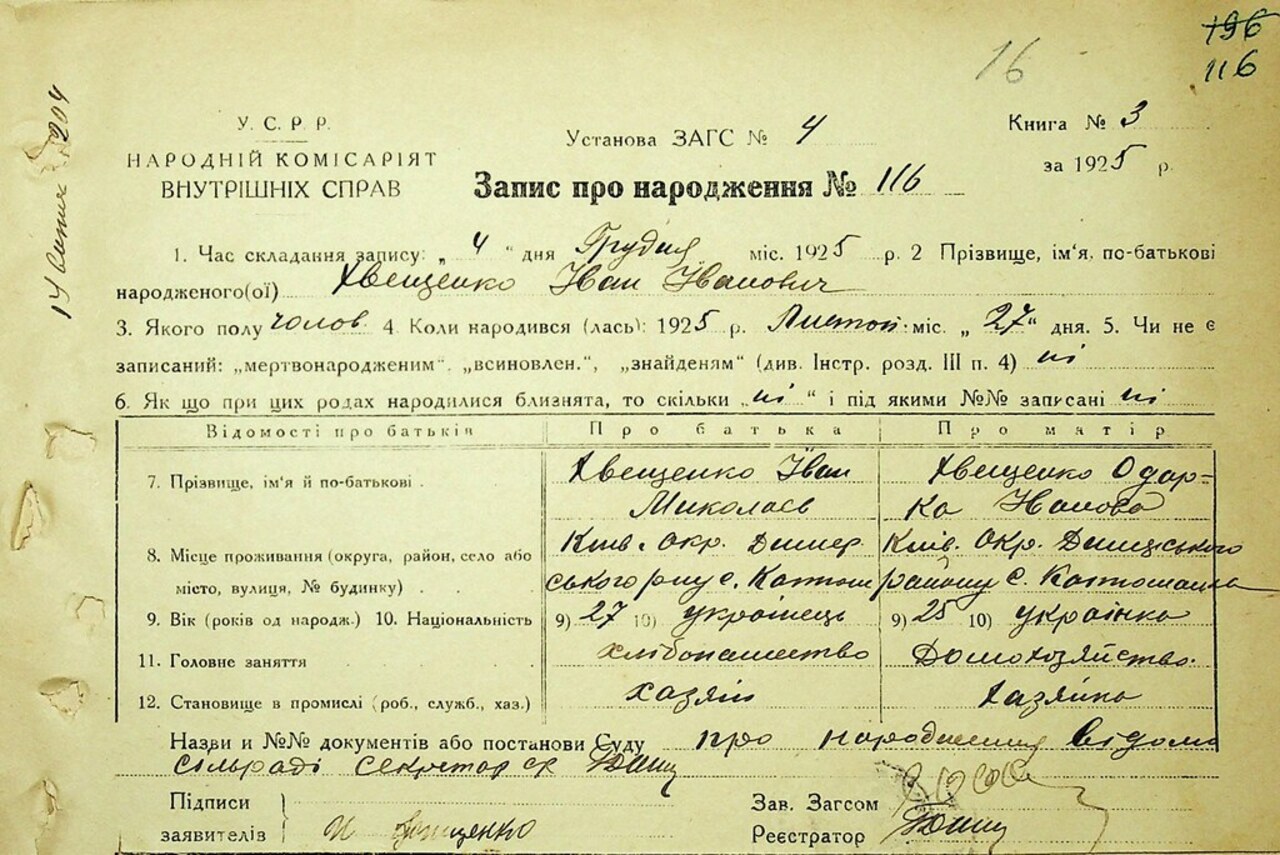 196
16
116
У. С. Р. Р.
НАРОДНІЙ КОМІСАРІЯТ
ВНУТРІШНІХ СПРАВ
Установа ЗАГС № 4
Книга № 3
за 1925 р.
Запис про народження № 116
1. Час складання запису: „ 4 " дня Грудня міс. 1925 р. 2 Прізвище, ім'я, по-батькові
народженого(ої) Хвещенко Іван Іванович
3. Якого полу чолов. 4 Коли народився (лась): 1925 р. Листоп. міс. „ 27 " дня. 5. Чи не є
записаний: „мертвонародженим". „всиновлен.", „знайденям" (див. Інстр. розд. III п. 4) ні
6. Як що при цих родах народилися близнята, то скільки „ ні " і під якими №№ записані ні
Відомості про батьків Про батька Про матір
7. Прізвище, ім'я й по-батькові . Хвещенко Іван Миколаєв Хвещенко Одар=
ка Іванова
8. Місце проживання (округа, район, село або
місто, вулиця, № будинку) . . Київ. Окр. Димер
ського р-ну с. Київ. Окр. Димерського
району с.
9. Вік (років од народж.) 10. Національність 9) 27 10) українець 9) 25 10) українка
11. Головне заняття хлібопашество Домохозяйство.
12. Становище в промислі (роб., служб., хаз.) хазяїн Хазяйка
Назви и №№ документів або постанови Суду про народження відомо
сільраді Секретар
Підписи
заявителів И Хвещенко
Зав. Загсом
Реєстратор
14
204